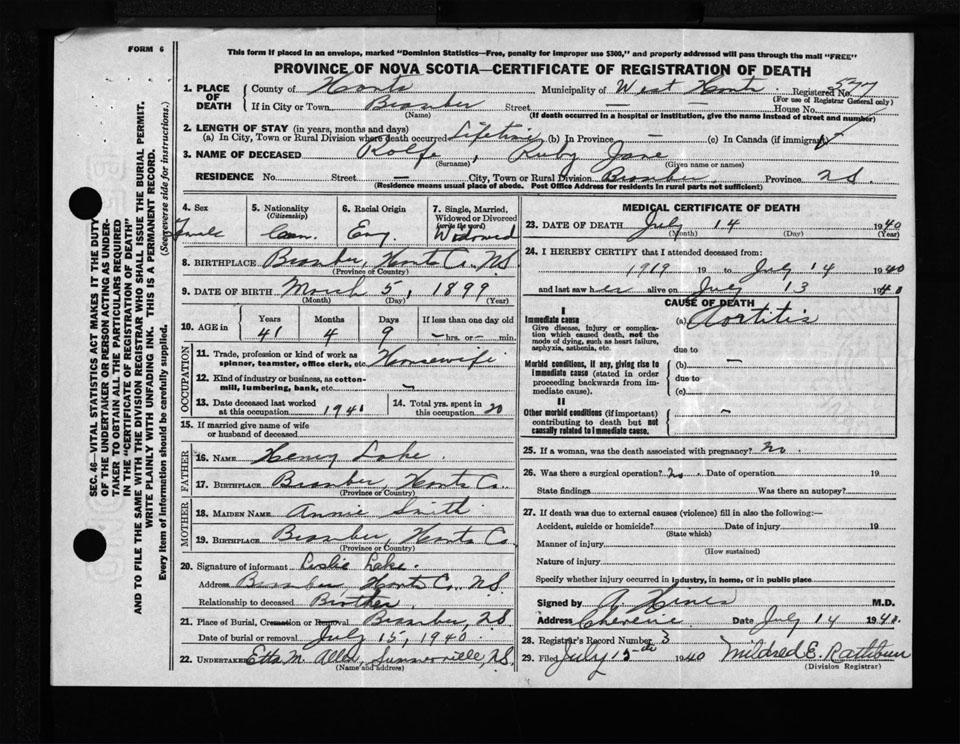 FORM 6
This form if placed in an envelope, marked "Dominion Statistics—Free, penalty for improper use $300," and properly addressed will pass through the mail "FREE"
PROVINCE OF NOVA SCOTIA—CERTIFICATE OF REGISTRATION OF DEATH
1. PLACE OF DEATH County of Hants Municipality of West Hants Registered No. 577
(For use of Registrar General only)
If in City or Town Bramber Street — House No. —
(Name) (If death occurred in a hospital or institution, give the name instead of street and number)
2. LENGTH OF STAY (in years, months and days)
(a) In City, Town or Rural Division where death occurred Lifetime (b) In Province — (c) In Canada (if immigrant)
3. NAME OF DECEASED Rolfe, Ruby Jane
(Surname) (Given name or names)
RESIDENCE No. Street — City, Town or Rural Division Bramber Province N.S.
(Residence means usual place of abode. Post Office Address for residents in rural parts not sufficient)
4. Sex Female
5. Nationality (Citizenship) Can.
6. Racial Origin Eng.
7. Single, Married, Widowed or Divorced (write the word) Widowed
8. BIRTHPLACE Bramber, Hants Co. N.S.
(Province or Country)
9. DATE OF BIRTH March 5, 1899
(Month) (Day) (Year)
10. AGE in Years 41 Months 4 Days 9 If less than one day old — hrs. or — min.
OCCUPATION
11. Trade, profession or kind of work as spinner, teamster, office clerk, etc. Housewife
12. Kind of industry or business, as cotton-mill, lumbering, bank, etc. —
13. Date deceased last worked at this occupation 1940
14. Total yrs. spent in this occupation 20
15. If married give name of wife or husband of deceased
FATHER
16. NAME Henry Lake
17. BIRTHPLACE Bramber, Hants Co.
(Province or Country)
MOTHER
18. MAIDEN NAME Annie Smith
19. BIRTHPLACE Bramber, Hants Co.
(Province or Country)
20. Signature of informant Leslie Lake.
Address Bramber Hants Co. N.S.
Relationship to deceased Brother
21. Place of Burial, Cremation or Removal Bramber, N.S.
Date of burial or removal July 15, 1940.
22. UNDERTAKER Etta M. Allen, Summerville, N.S.
(Name and address)
MEDICAL CERTIFICATE OF DEATH
23. DATE OF DEATH July 14 1940
(Month) (Day) (Year)
24. I HEREBY CERTIFY that I attended deceased from:
1919 19 to July 14 1940
and last saw her alive on July 13 1940
CAUSE OF DEATH
I
Immediate cause (a) Aortitis
Give disease, injury or complication which caused death, not the mode of dying, such as heart failure, asphyxia, asthenia, etc.
due to
Morbid conditions, if any, giving rise to immediate cause (stated in order proceeding backwards from immediate cause).
(b) —
due to
(c)
II
Other morbid conditions (if important) contributing to death but not causally related to immediate cause. —
25. If a woman, was the death associated with pregnancy? No.
26. Was there a surgical operation? No. Date of operation 19
State findings Was there an autopsy?
27. If death was due to external causes (violence) fill in also the following:—
Accident, suicide or homicide? Date of injury 19
(State which)
Manner of injury
(How sustained)
Nature of injury
Specify whether injury occurred in industry, in home, or in public place
Signed by A. Hines M.D.
Cheverie Date July 14 1940.
28. Registrar's Record Number 3
29. Filed July 15th 1940 Mildred E. Rathbun
(Division Registrar)
SEC. 46—VITAL STATISTICS ACT MAKES IT THE DUTY
OF THE UNDERTAKER OR PERSON ACTING AS UNDER-
TAKER TO OBTAIN ALL THE PARTICULARS REQUIRED
IN THE "CERTIFICATE OF REGISTRATION OF DEATH"
AND TO FILE THE SAME WITH THE DIVISION REGISTRAR WHO SHALL ISSUE THE BURIAL PERMIT.
WRITE PLAINLY WITH UNFADING INK. THIS IS A PERMANENT RECORD.
Every item of information should be carefully supplied. (See reverse side for instructions.)